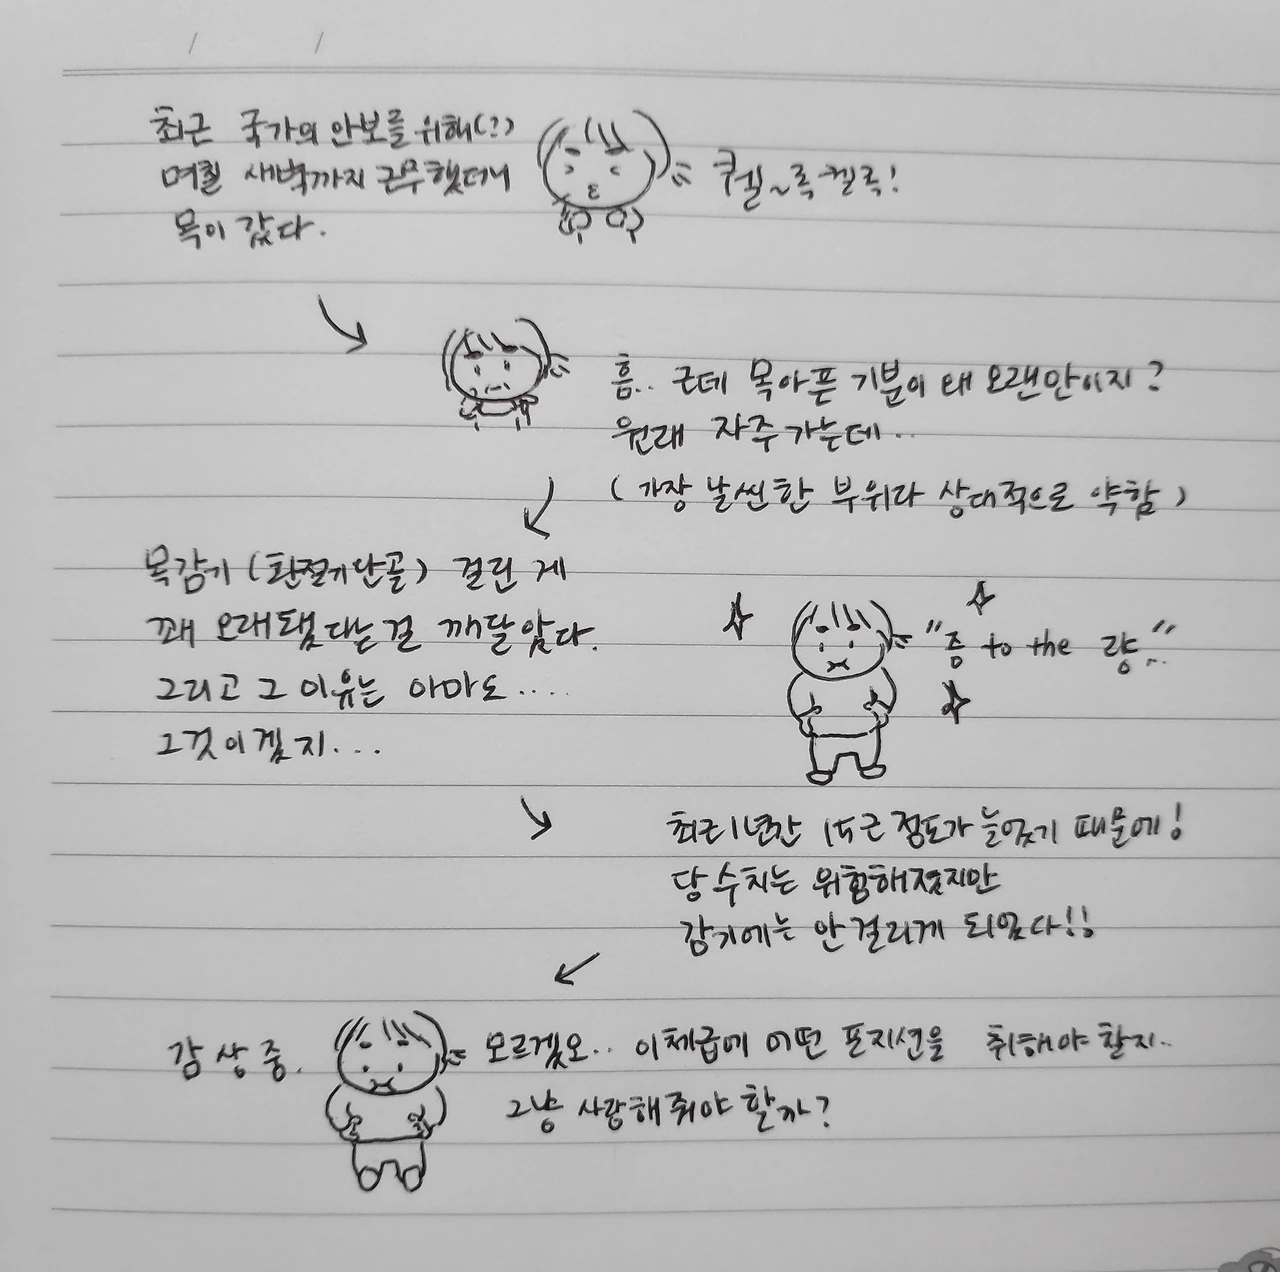 최근 국가의 안보를 위해(?)
며칠 새벽까지 근무했더니
목이 갔다.
퀠~록 켈록!
흠.. 근데 목아픈 기분이 왜 오랜만이지?
원래 자주가는데..
(가장 날씬한 부위라 상대적으로 약함)
목감기 (환절기단골) 걸린 게
꽤 오래됐다는걸 깨달았다.
그리고 그 이유는 아마도....
그것이겠지...
"증 to the 량"
최근 1년간 15근 정도가 늘었기 때문에!
당 수치는 위험해졌지만
감기에는 안 걸리게 되었다!!
감상중.
모르겠오.. 이체급에 어떤 포지션을 취해야 할지..
그냥 사랑해줘야 할까?